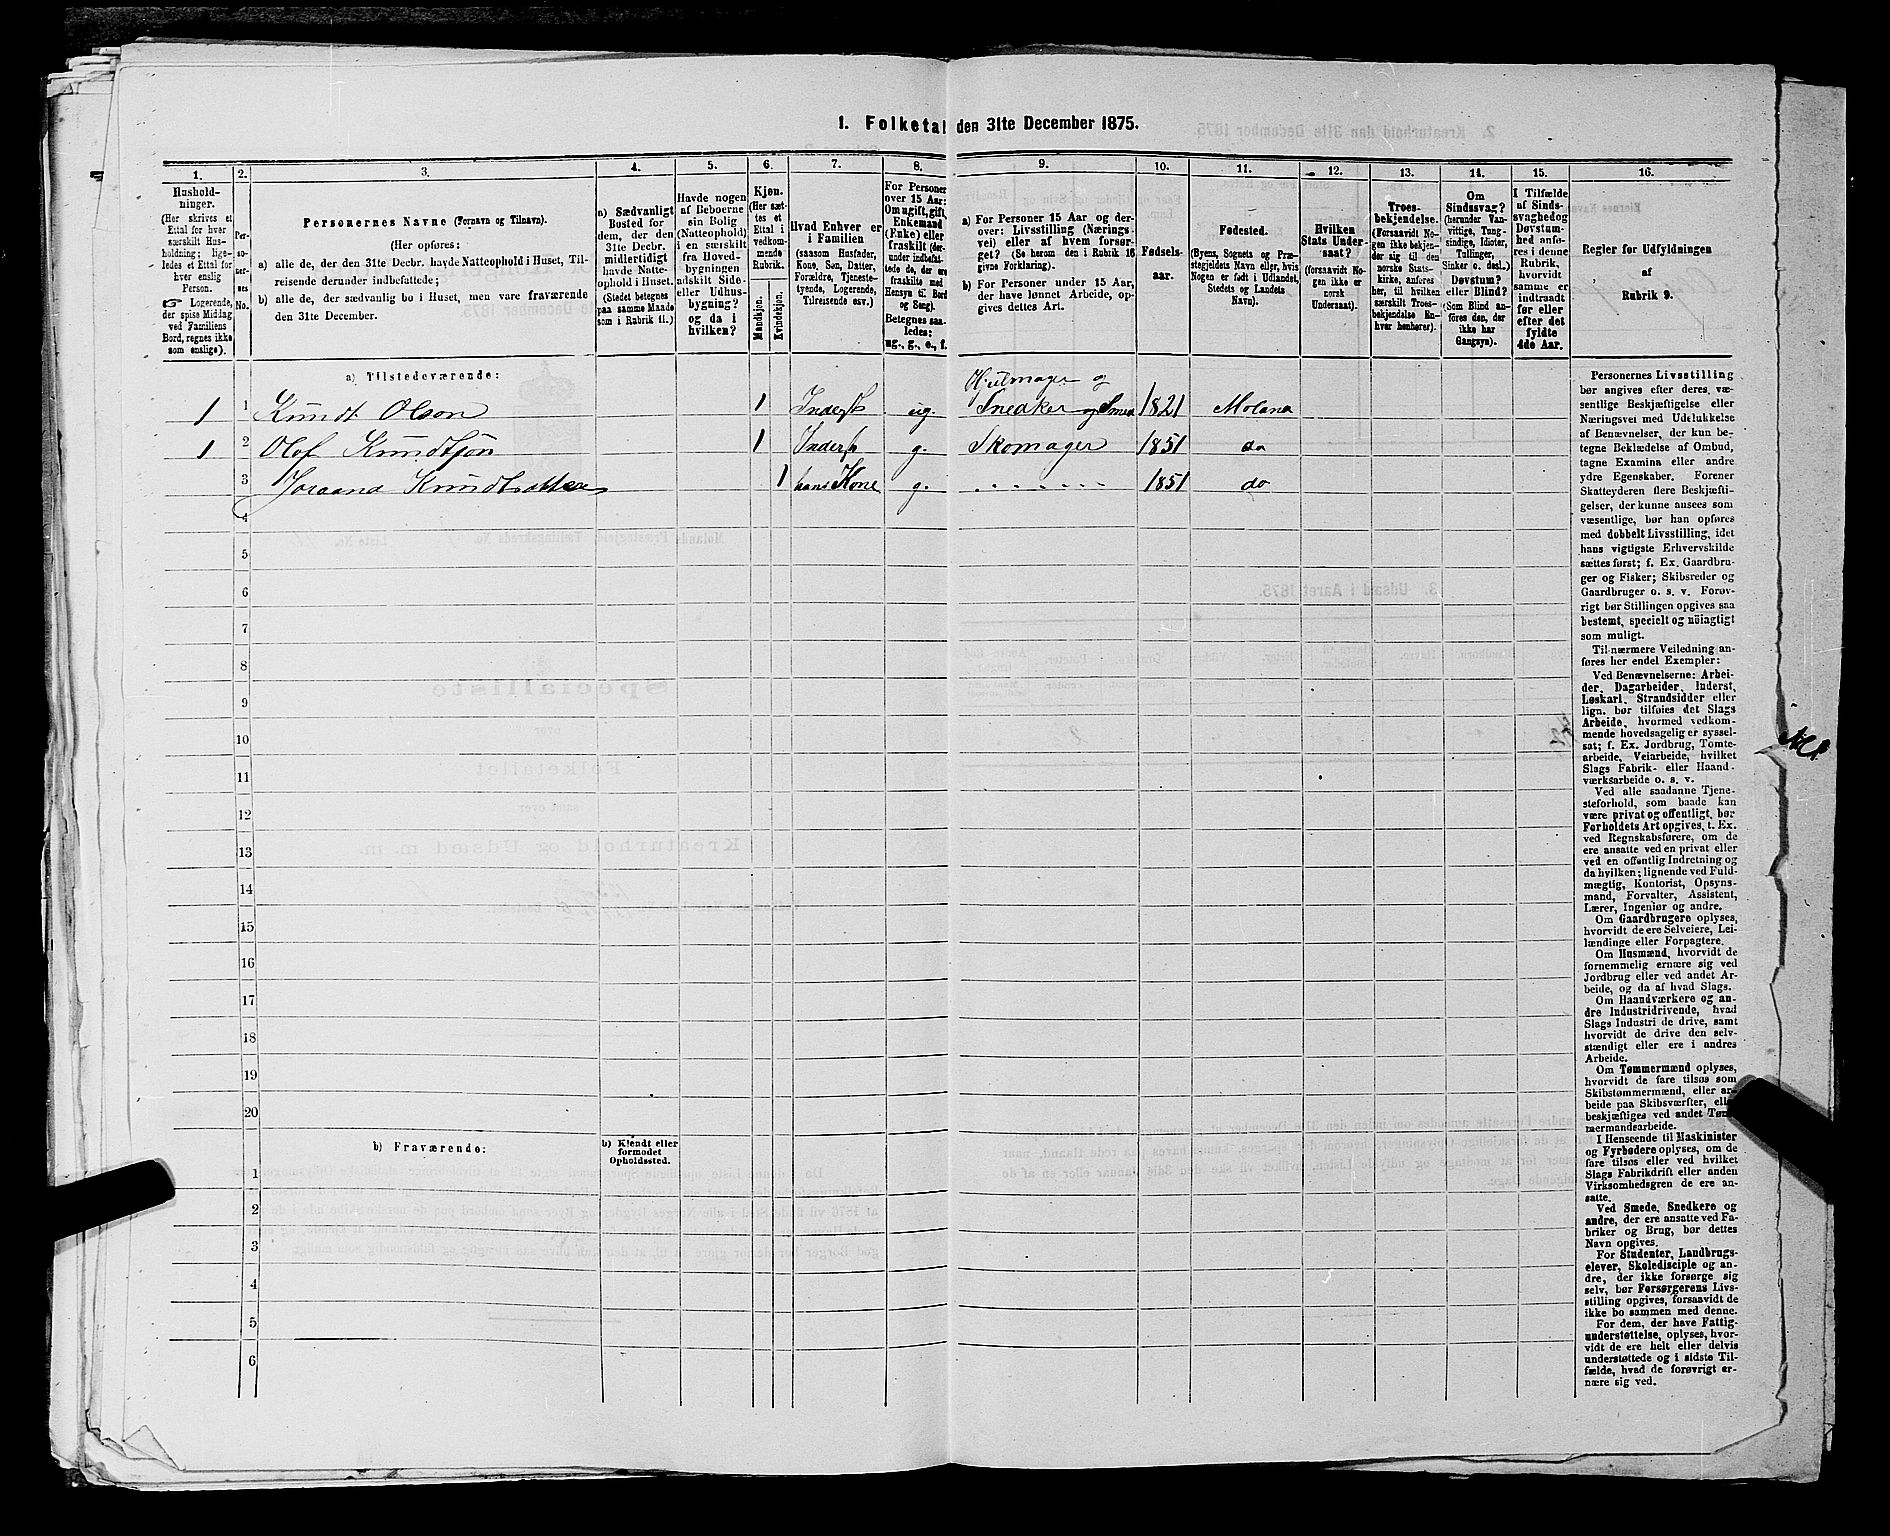 1. Folketal den 31te December 1875.
1. 2. 3. 4. 5. 6. 7. 8. 9. 10. 11. 12. 13. 14. 15. 16.
Hushold-
ninger.
(Her skrives et
Ettal for hver
særskilt Hus-
holdning; lige-
ledes et Ettal for
hver enslig
Person.
☞ Logerende,
der spise Middag
ved Familiens
Bord, regnes ikke
som enslige).
Per-
so-
ner-
nes
No.
Personernes Navne (Fornavn og Tilnavn).
(Her opføres:
a) alle de, der den 31te Decbr. havde Natteophold i Huset, Til-
reisende derunder indbefattede;
b) alle de, der sædvanlig bo i Huset, men vare fraværende
den 31te December.
a) Sædvanligt
Bosted for
dem, der den
31te Decbr.
midlertidigt
havde Natte-
ophold i Huset.
(Stedet betegnes
paa samme Maade
som i Rubrik 11.)
Havde nogen
af Beboerne
sin Bolig
(Natteophold)
i en særskilt
fra Hoved-
bygningen
adskilt Side-
eller Udhus-
bygning?
og da i
hvilken?
Kjøn.
(Her sæt-
tes et
Ettal i
vedkom-
mende
Rubrik.
Mandkjøn.
Kvindekjøn.
Hvad Enhver er
i Familien
(saasom Husfader,
Kone, Søn, Datter,
Forældre, Tjeneste-
tyende, Logerende,
Tilreisende osv.)
For Personer
over 15 Aar:
Om ugift, gift,
Enkemand
(Enke) eller
fraskilt (der-
under indbefat-
tede de, der ere
fraskilte med
Hensyn til Bord
og Seng).
Betegnes saa-
ledes:
ug., g., e., f.
a) For Personer 15 Aar og der-
over: Livsstilling (Nærings-
vei) eller af hvem forsør-
get? (Se herom den i Rubrik 16
givne Forklaring).
b) For Personer under 15 Aar,
der have lønnet Arbeide, op-
gives dettes Art.
Fødsels-
aar.
Fødested.
(Byens, Sognets og Præ-
stegjeldets Navn eller, hvis
Nogen er født i Udlandet,
Stedets og Landets
Navn).
Hvilken
Stats Under-
saat?
(forsaavidt No-
gen ikke er
norsk
Undersaat).
Troes-
bekjendelse.
(Forsaavidt No-
gen ikke bekjen-
der sig til den
norske Stats-
kirke, anføres
her, til hvilken
særskilt Troes-
bekjendelse En-
hver henhører).
Om
Sindssvag?
(herunder Van-
vittige, Tung-
sindige, Idioter,
Tullinger,
Sinker o. desl.)
Døvstum?
eller Blind?
(Som Blind an-
føres den, der
ikke har
Gangsyn).
I Tilfælde
af Sinds-
svaghed og
Døvstum-
hed anfø-
res i denne
Rubrik,
hvorvidt
samme er
indtraadt
før eller
efter det
fyldte
4de Aar.
Regler for Udfyldningen
af
Rubrik 9.
a) Tilstedeværende:
Hjulmager og
1 1 Knudt Olsen 1 Inderst ug. Snedker og Smed 1821 Moland
1 2 Olef Knudtsøn 1 Inderst g. Skomager 1851 do
3 Joraand Knudtsdatter 1 hans Kone g. 1851 do
4
5
6
7
8
9
10
11
12
13
14
15
16
17
18
19
20
b) Fraværende:
b) Kjendt eller
formodet
Opholdssted.
1
2
3
4
5
6
Personernes Livsstilling
bør angives efter deres væ-
sentlige Beskjæftigelse eller
Næringsvei med Udelukkelse
af Benævnelser, der kun be-
tegne Beklædelse af Ombud,
tagne Examina eller andre
ydre Egenskaber. Forener
Skatteyderen flere Beskjæfti-
gelser, der kunne ansees som
væsentlige, bør han opføres
med dobbelt Livsstilling, idet
hans vigtigste Erhvervskilde
sættes først; f. Ex. Gaardbru-
ger og Fisker; Skibsreder og
Gaardbruger o. s. v. Forøv-
rigt bør Stillingen opgives saa
bestemt, specielt og nøiagtigt
som muligt.
Til nærmere Veiledning an-
føres her endel Exempler:
Ved Benævnelserne: Arbei-
der, Dagarbeider, Inderst,
Løskarl, Strandsidder eller
lign. bør tilføies det Slags
Arbeide, hvormed vedkom-
mende hovedsagelig er syssel-
sat; f. Ex. Jordbrug, Tomte-
arbeide, Veiarbeide, hvilket
Slags Fabrik- eller Haand-
værksarbeide o. s. v.
Ved alle saadanne Tjene-
steforhold, som baade kan
være privat og offentligt, bør
Forholdets Art opgives, t. Ex.
ved Regnskabsførere, om de
ere ansatte ved en privat eller
ved en offentlig Indretning og
da hvilken; lignende ved Fuld-
mægtig, Kontorist, Opsyns-
mand, Forvalter, Assistent,
Lærer, Ingeniør og andre.
Om Gaardbrugere oplyses,
hvorvidt de ere Selveiere, Lei-
lændinge eller Forpagtere.
Om Husmænd, hvorvidt de
fornemmelig ernære sig ved
Jordbrug eller ved andet Ar-
beide, og da af hvad Slags.
Om Haandværkere og an-
dre Industridrivende, hvad
Slags Industri de drive, samt
hvorvidt de drive den selv-
stændigt eller ere i andres
Arbeide.
Om Tømmermænd oplyses,
hvorvidt de fare tilsøs som
Skibstømmermænd, eller ar-
beide paa Skibsværfter, eller
beskjæftiges ved andet Tøm-
mermandsarbeide.
I Henseende til Maskinister
og Fyrbødere oplyses, om de
fare tilsøs eller ved hvilket
Slags Fabrikdrift eller anden
Virksomhedsgren de ere an-
satte.
Ved Smede, Snedkere og
andre, der ere ansatte ved Fa-
briker og Brug, bør dettes
Navn opgives.
For Studenter, Landbrugs-
elever, Skoledisciple og an-
dre, der ikke forsørge sig
selv, bør Forsørgerens Livs-
stilling opgives, forsaavidt de
ikke bo sammen med denne.
For dem, der have Fattig-
understøttelse, oplyses, hvor-
vidt de ere helt eller delvis
understøttede og i sidste Til-
fælde, hvad de forøvrigt er-
nære sig ved.